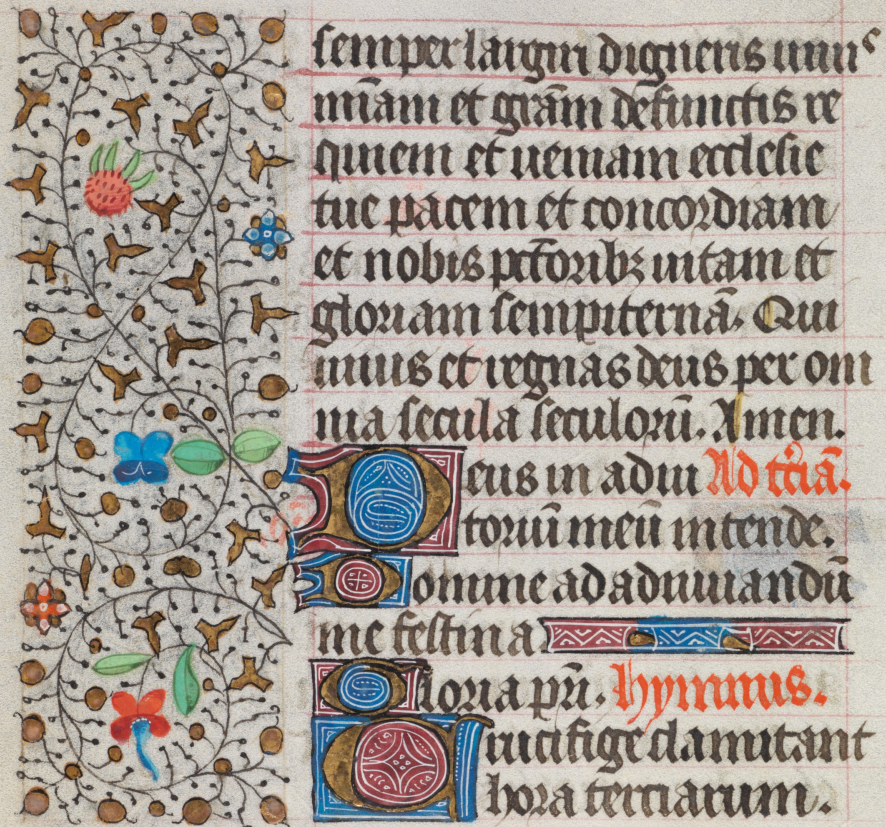 semper largiri digneris uiuis
mīam et grām defunctis re
quiem et ueniam ecclesie
tue pacem et concordiam
et nobis pctōribꝫ uitam et
gloriam sempiternā. Qui
uiuis et regnas deus per om
nia secula seculorū. Amen.
Deus in adiu Ad tciā.
toriū meū intende.
Domine ad adiuuandū
me festina
Gloria pri. hymnus.
Crucifige clamitant
hora terciarum.